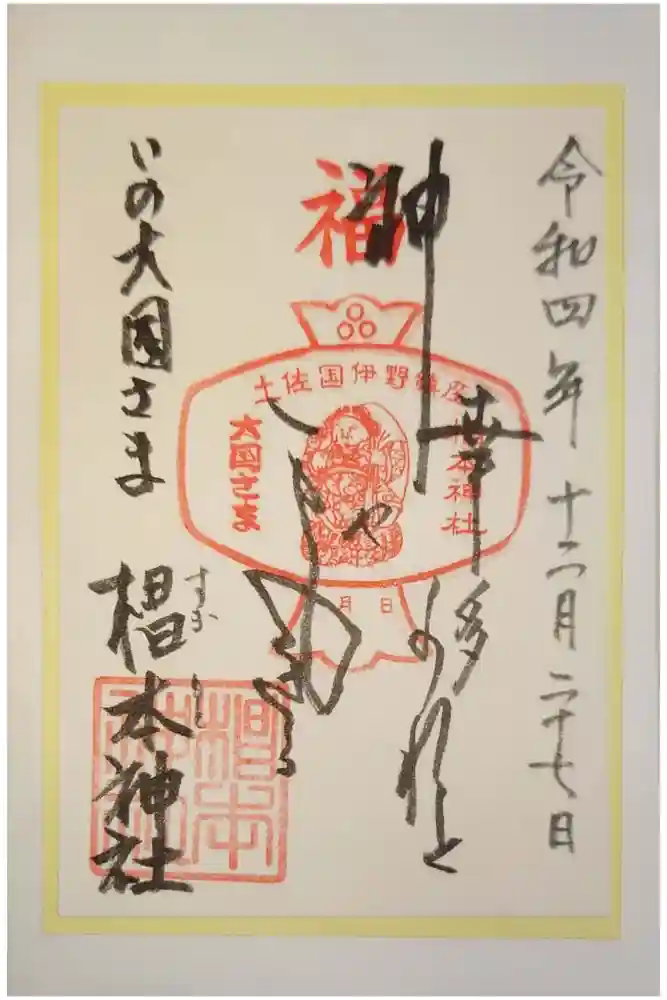 令和四年十二月二十七日
福
神
幸多かれと
土佐国伊野鎮座
椙本神社
大国さま
月 日
いの大国さま
椙本神社
すぎもと
椙本神社